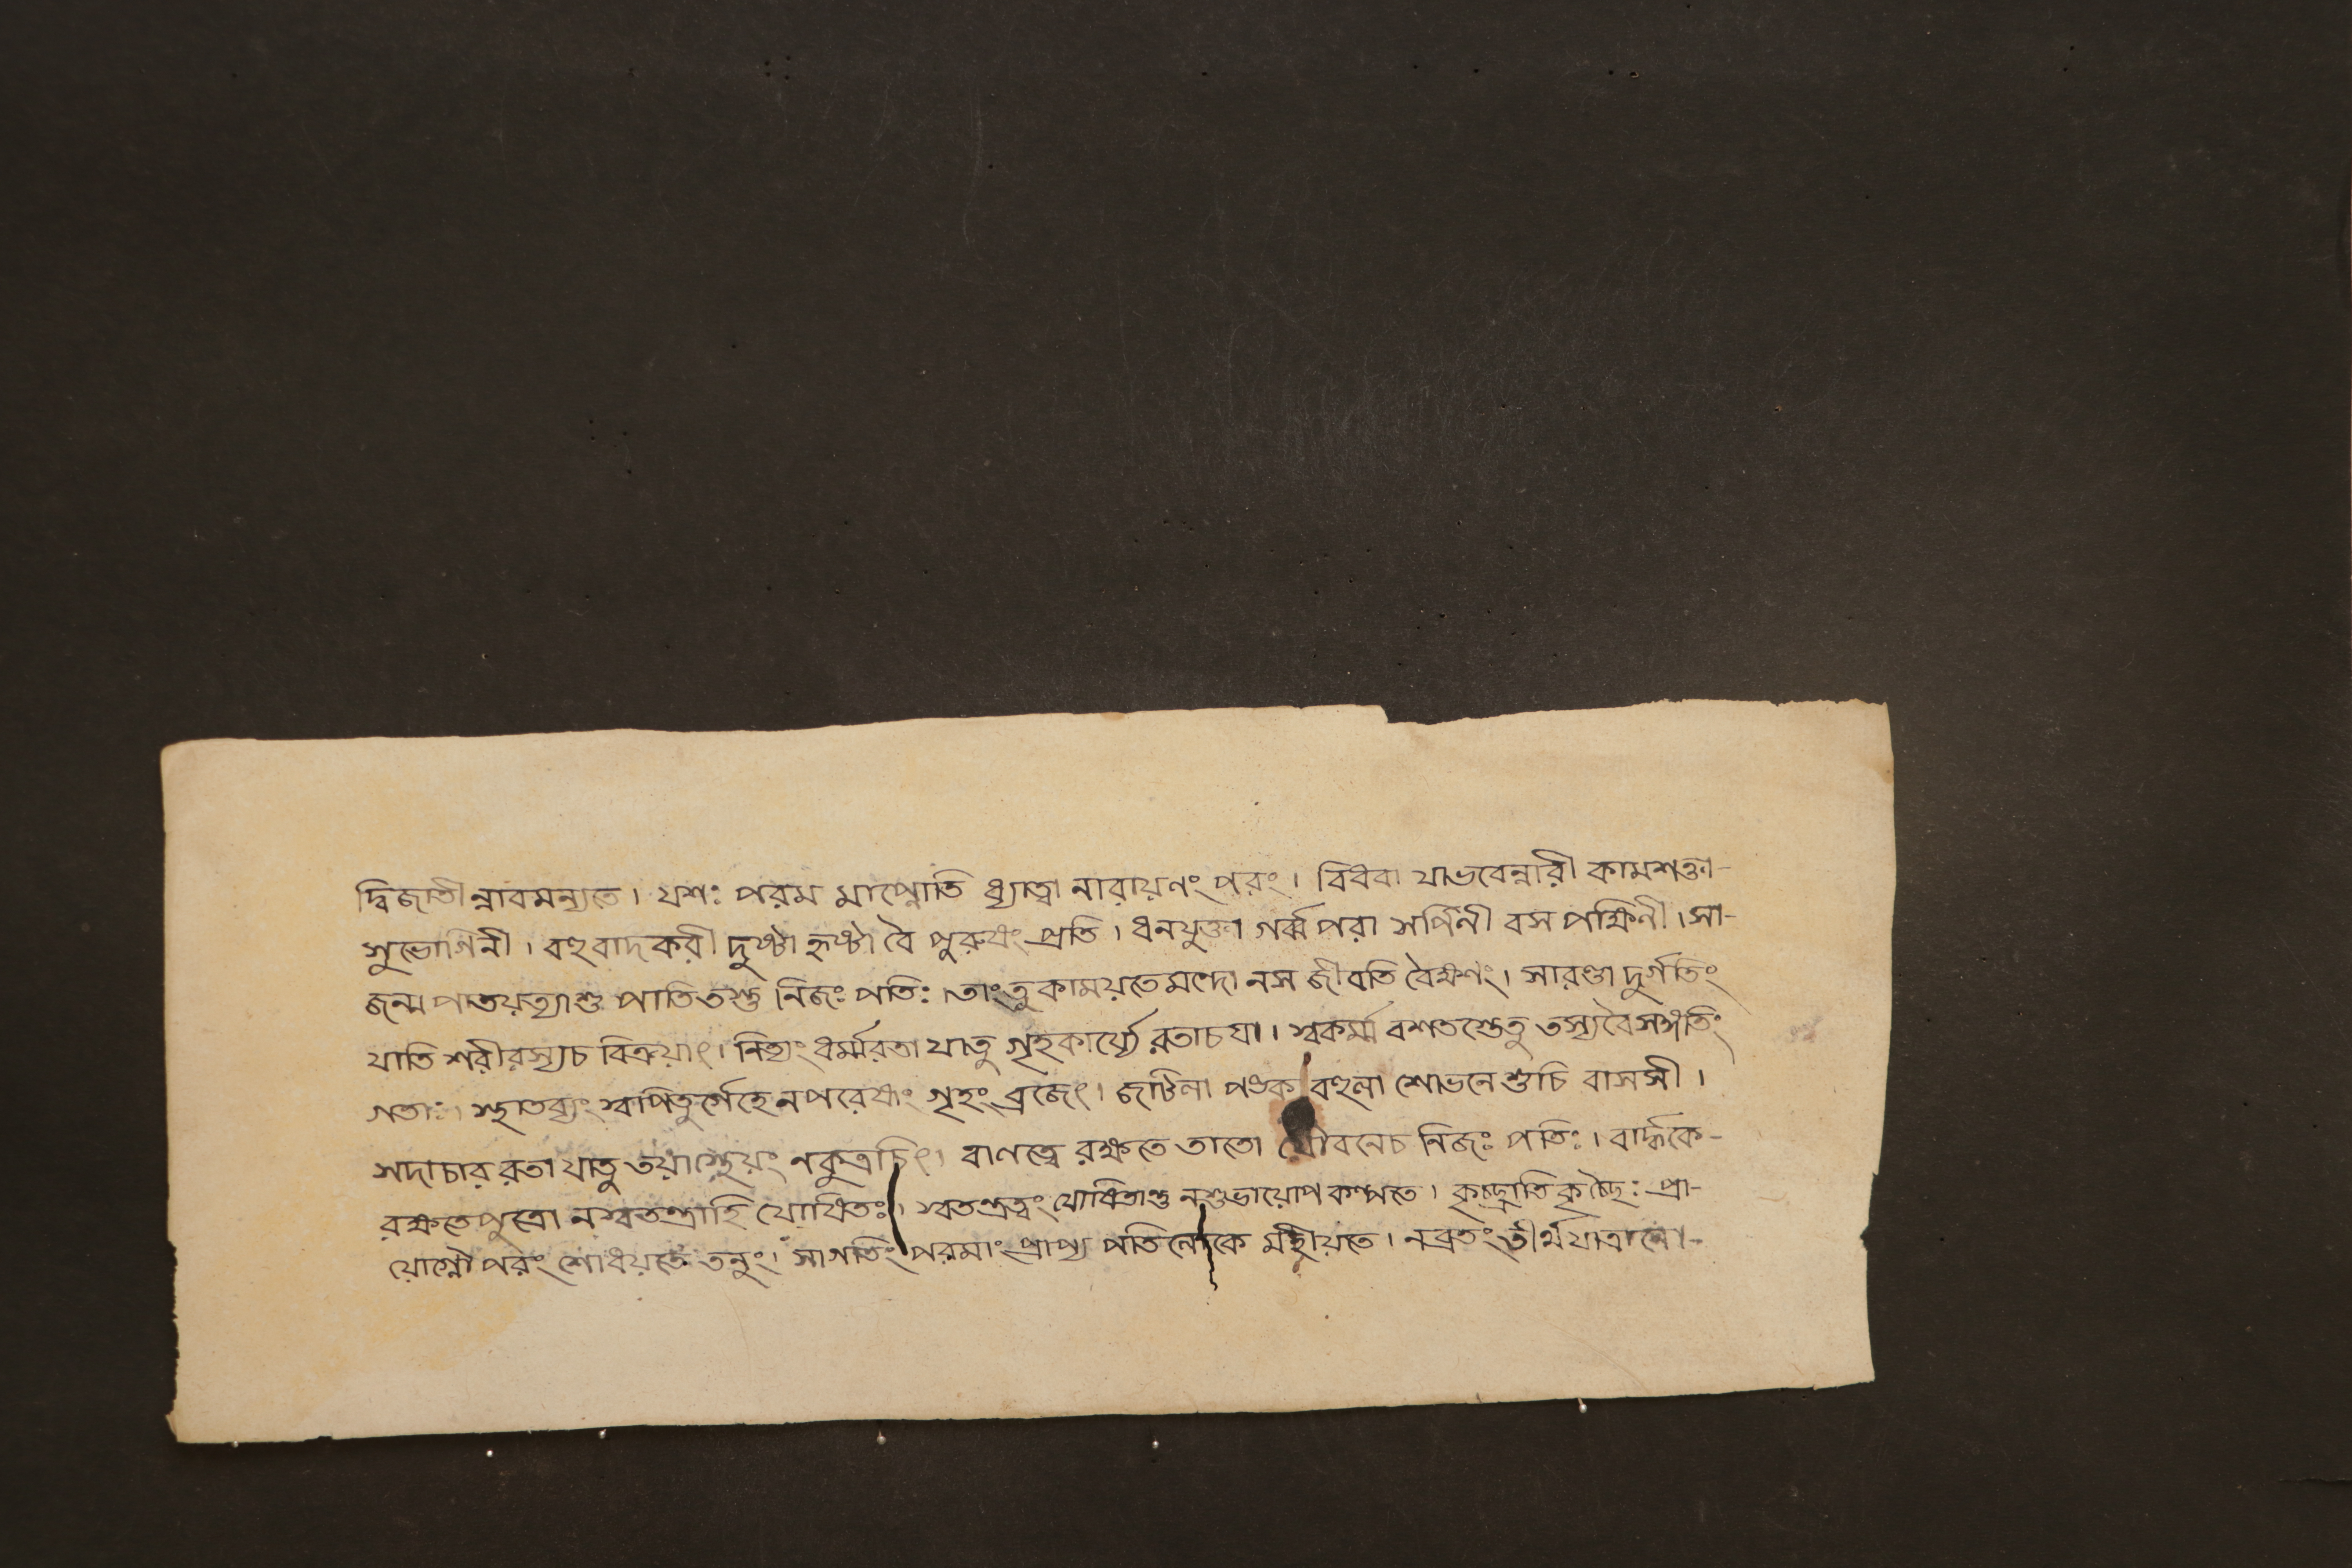 দ্বিজাতীন্নাবমন্যতে। যশঃ পরম মাপ্নোতি ধ্যাত্বা নারায়ণং পরং। বিধবা যাভবেন্নারী কামশক্তা-
সুভোগিনী। বহুবাদকরী দুষ্টা হৃষ্টা বৈ পুরুষং প্রতি। ধনযুক্তা গর্ব্বপরা সর্পিনী বস পক্ষিণী। সা-
জন্ম পাতয়ত্যাশু পাতিতস্তু নিজঃ পতিঃ। তাংতু কাময়তেমন্দো নস জীবতি বৈক্ষণং। সারণ্ডা দুর্গতিং
যাতি শরীরস্যচ বিক্রয়াৎ। নিত্যং ধর্ম্মরতা যাতু গৃহকার্য্যে রতাচযা। স্বকর্ম্ম বশতস্তেতু তস্যবৈসঙ্গতিং
গতাঃ। স্থাতব্যং স্বাপিতুর্গেহে নপরেষাং গৃহং ব্রজেৎ। জটিলা বহুলা শোভনে শুচি বাসসী।
সদাচার রতা যাতু তয়াস্থেয়ং নকুত্রচিৎ। বালত্বে রক্ষতে তাতো যৌবনেচ নিজঃ পতিঃ। বার্দ্ধকে-
রক্ষতেপুত্রো নস্বতন্ত্রাহি যোষিতঃ। স্বতন্ত্রত্বং যোষিতাস্তু নশুভায়োপ কল্পতে। কৃচ্ছ্রাতি কৃচ্ছ্রৈঃ প্রা-
যোগ্নৌ পরং শোধয়তে তনুং। সাগতিং পরমাং প্রাপ্য পতিলোকে মহীয়তে। নব্রতং তীর্থযাত্রানো-